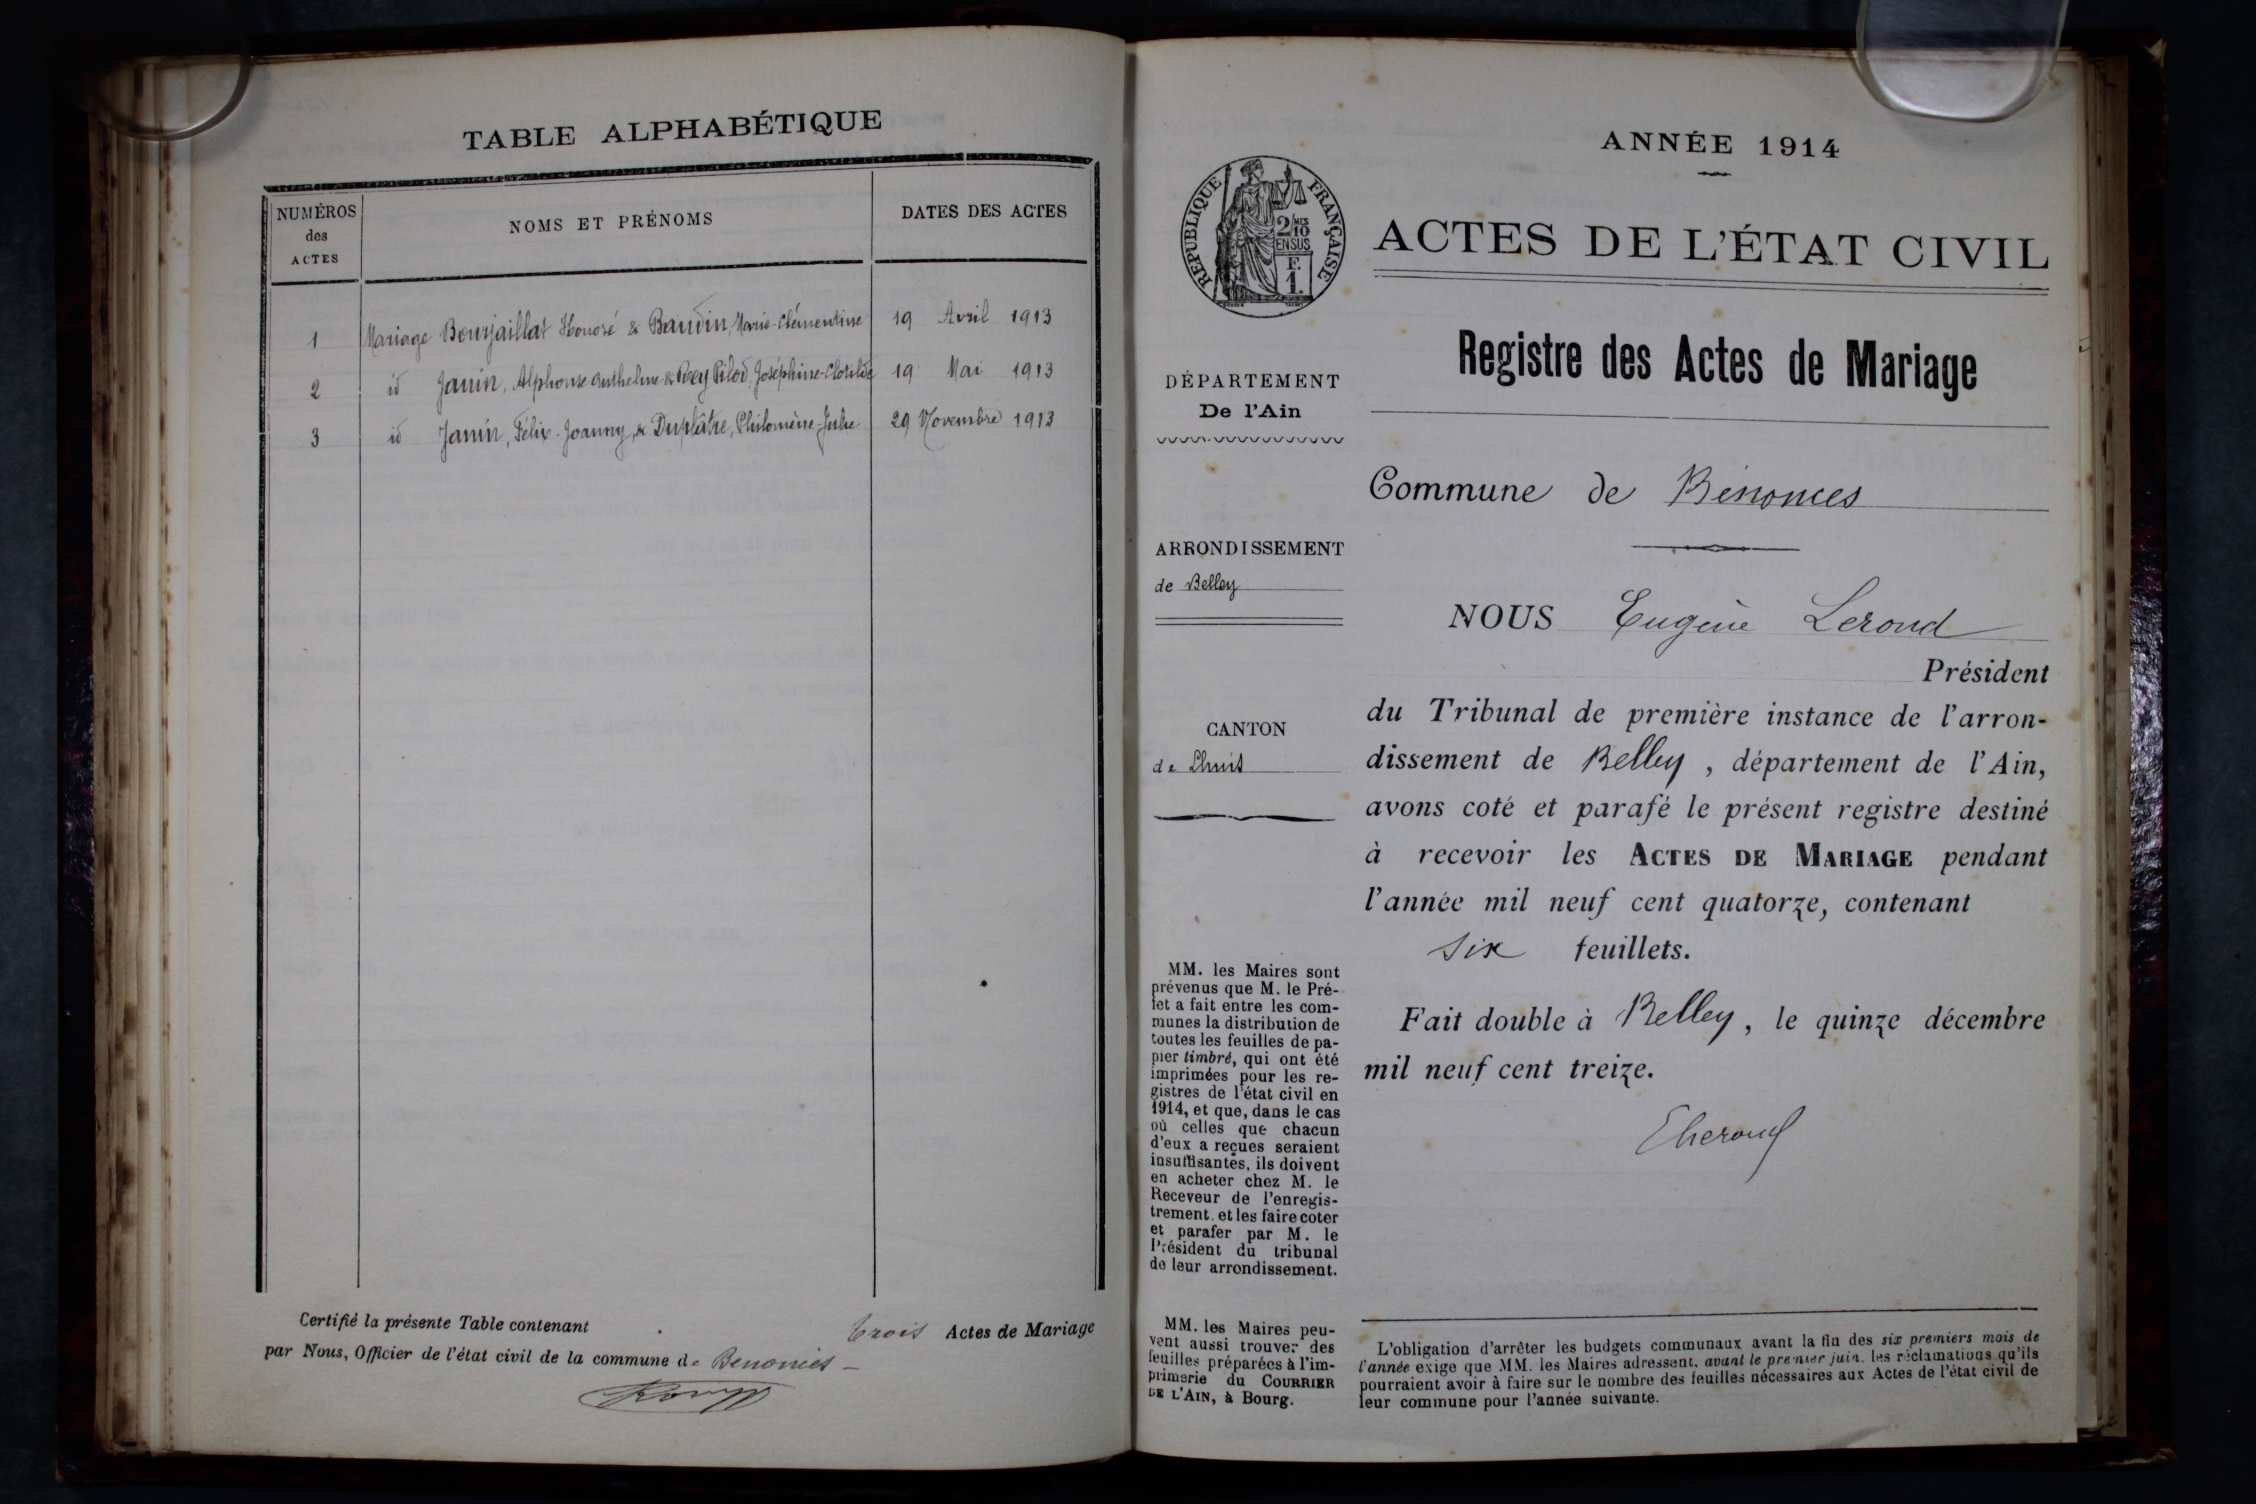 TABLE ALPHABÉTIQUE
NUMÉROS
des
ACTES
NOMS ET PRÉNOMS
DATES DES ACTES
1 Mariage Bourjaillat Honoré & Baudin, Marie-Clémentine 19 Avril 1913
2 id Janin, Alphonse Anthelme & Rey Pilod, Joséphine-Clotilde 19 Mai 1913
3 id Janin, Félix-Joanny, & Duplâtre, Philomène-Julie 29 Novembre 1913
Certifié la présente Table contenant trois Actes de Mariage
par Nous, Officier de l'état civil de la commune de Benonces
RÉPUBLIQUE FRANÇAISE
2/10 MES
EN SUS
F.
1.
DÉPARTEMENT
De l'Ain
ARRONDISSEMENT
de Belley
CANTON
de Lhuis
MM. les Maires sont
prévenus que M. le Pré-
fet a fait entre les com-
munes la distribution de
toutes les feuilles de pa-
pier timbré, qui ont été
imprimées pour les re-
gistres de l'état civil en
1914, et que, dans le cas
où celles que chacun
d'eux a reçues seraient
insuffisantes, ils doivent
en acheter chez M. le
Receveur de l'enregis-
trement, et les faire coter
et parafer par M. le
Président du tribunal
de leur arrondissement.
MM. les Maires peu-
vent aussi trouver des
feuilles préparées à l'im-
primerie du COURRIER
DE L'AIN, à Bourg.
ANNÉE 1914
ACTES DE L'ÉTAT CIVIL
Registre des Actes de Mariage
Commune de Bénonces
NOUS Eugène Lerond
Président
du Tribunal de première instance de l'arron-
dissement de Belley, département de l'Ain,
avons coté et parafé le présent registre destiné
à recevoir les ACTES DE MARIAGE pendant
l'année mil neuf cent quatorze, contenant
six feuillets.
Fait double à Belley, le quinze décembre
mil neuf cent treize.
ELerond
L'obligation d'arrêter les budgets communaux avant la fin des six premiers mois de
l'année exige que MM. les Maires adressent, avant le premier juin, les réclamations qu'ils
pourraient avoir à faire sur le nombre des feuilles nécessaires aux Actes de l'état civil de
leur commune pour l'année suivante.